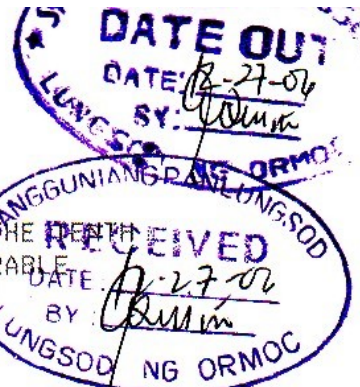 DATE OUT
DATE: 12-27-04
BY:
LUNGSOD NG ORMOC
SANGGUNIANG PANLUNGSOD
HE TENTH
RECEIVED
RABLE
DATE: 12-27-02
BY:
LUNGSOD NG ORMOC